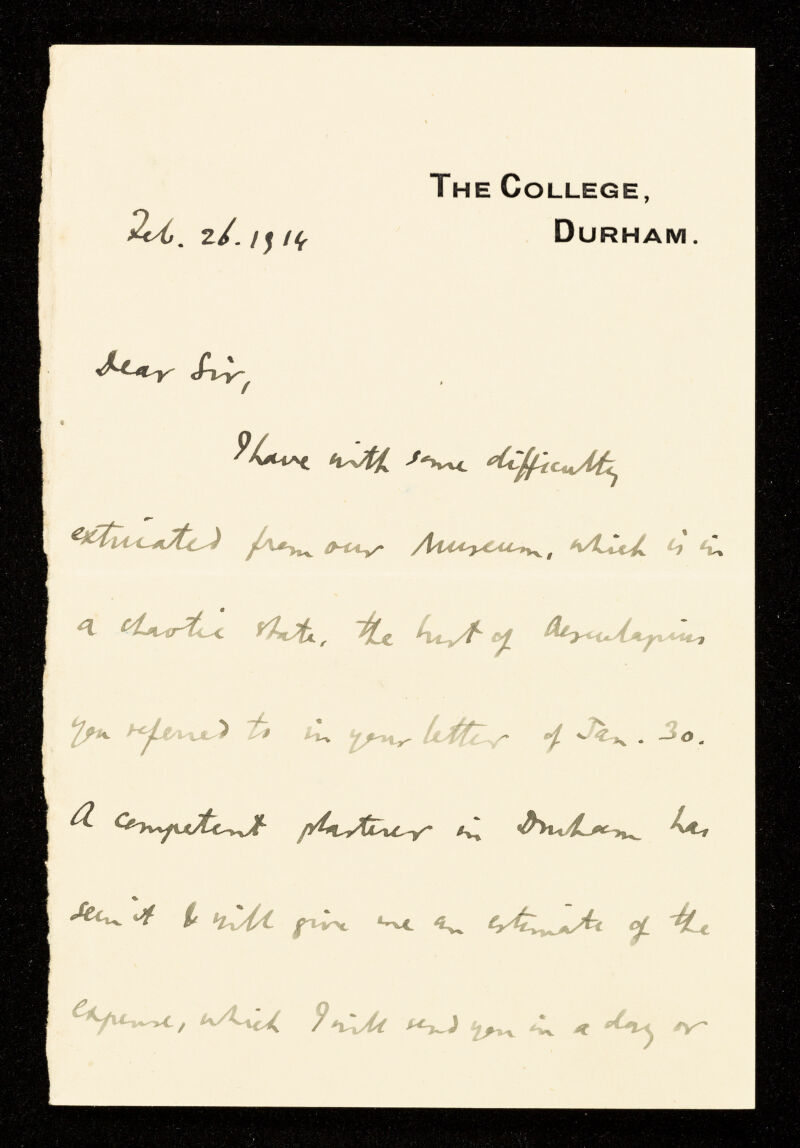 THE COLLEGE,
DURHAM.
Feb. 26. 1914
Dear Sir,
I have with some difficulty
extricated from our Museum, which is in
a chaotic state, the bust of Aesculapius
you referred to in your letter of Jan. 30.
A competent plasterer in Durham has
seen it & will give me an estimate of the
expense, which I will send you in a day or